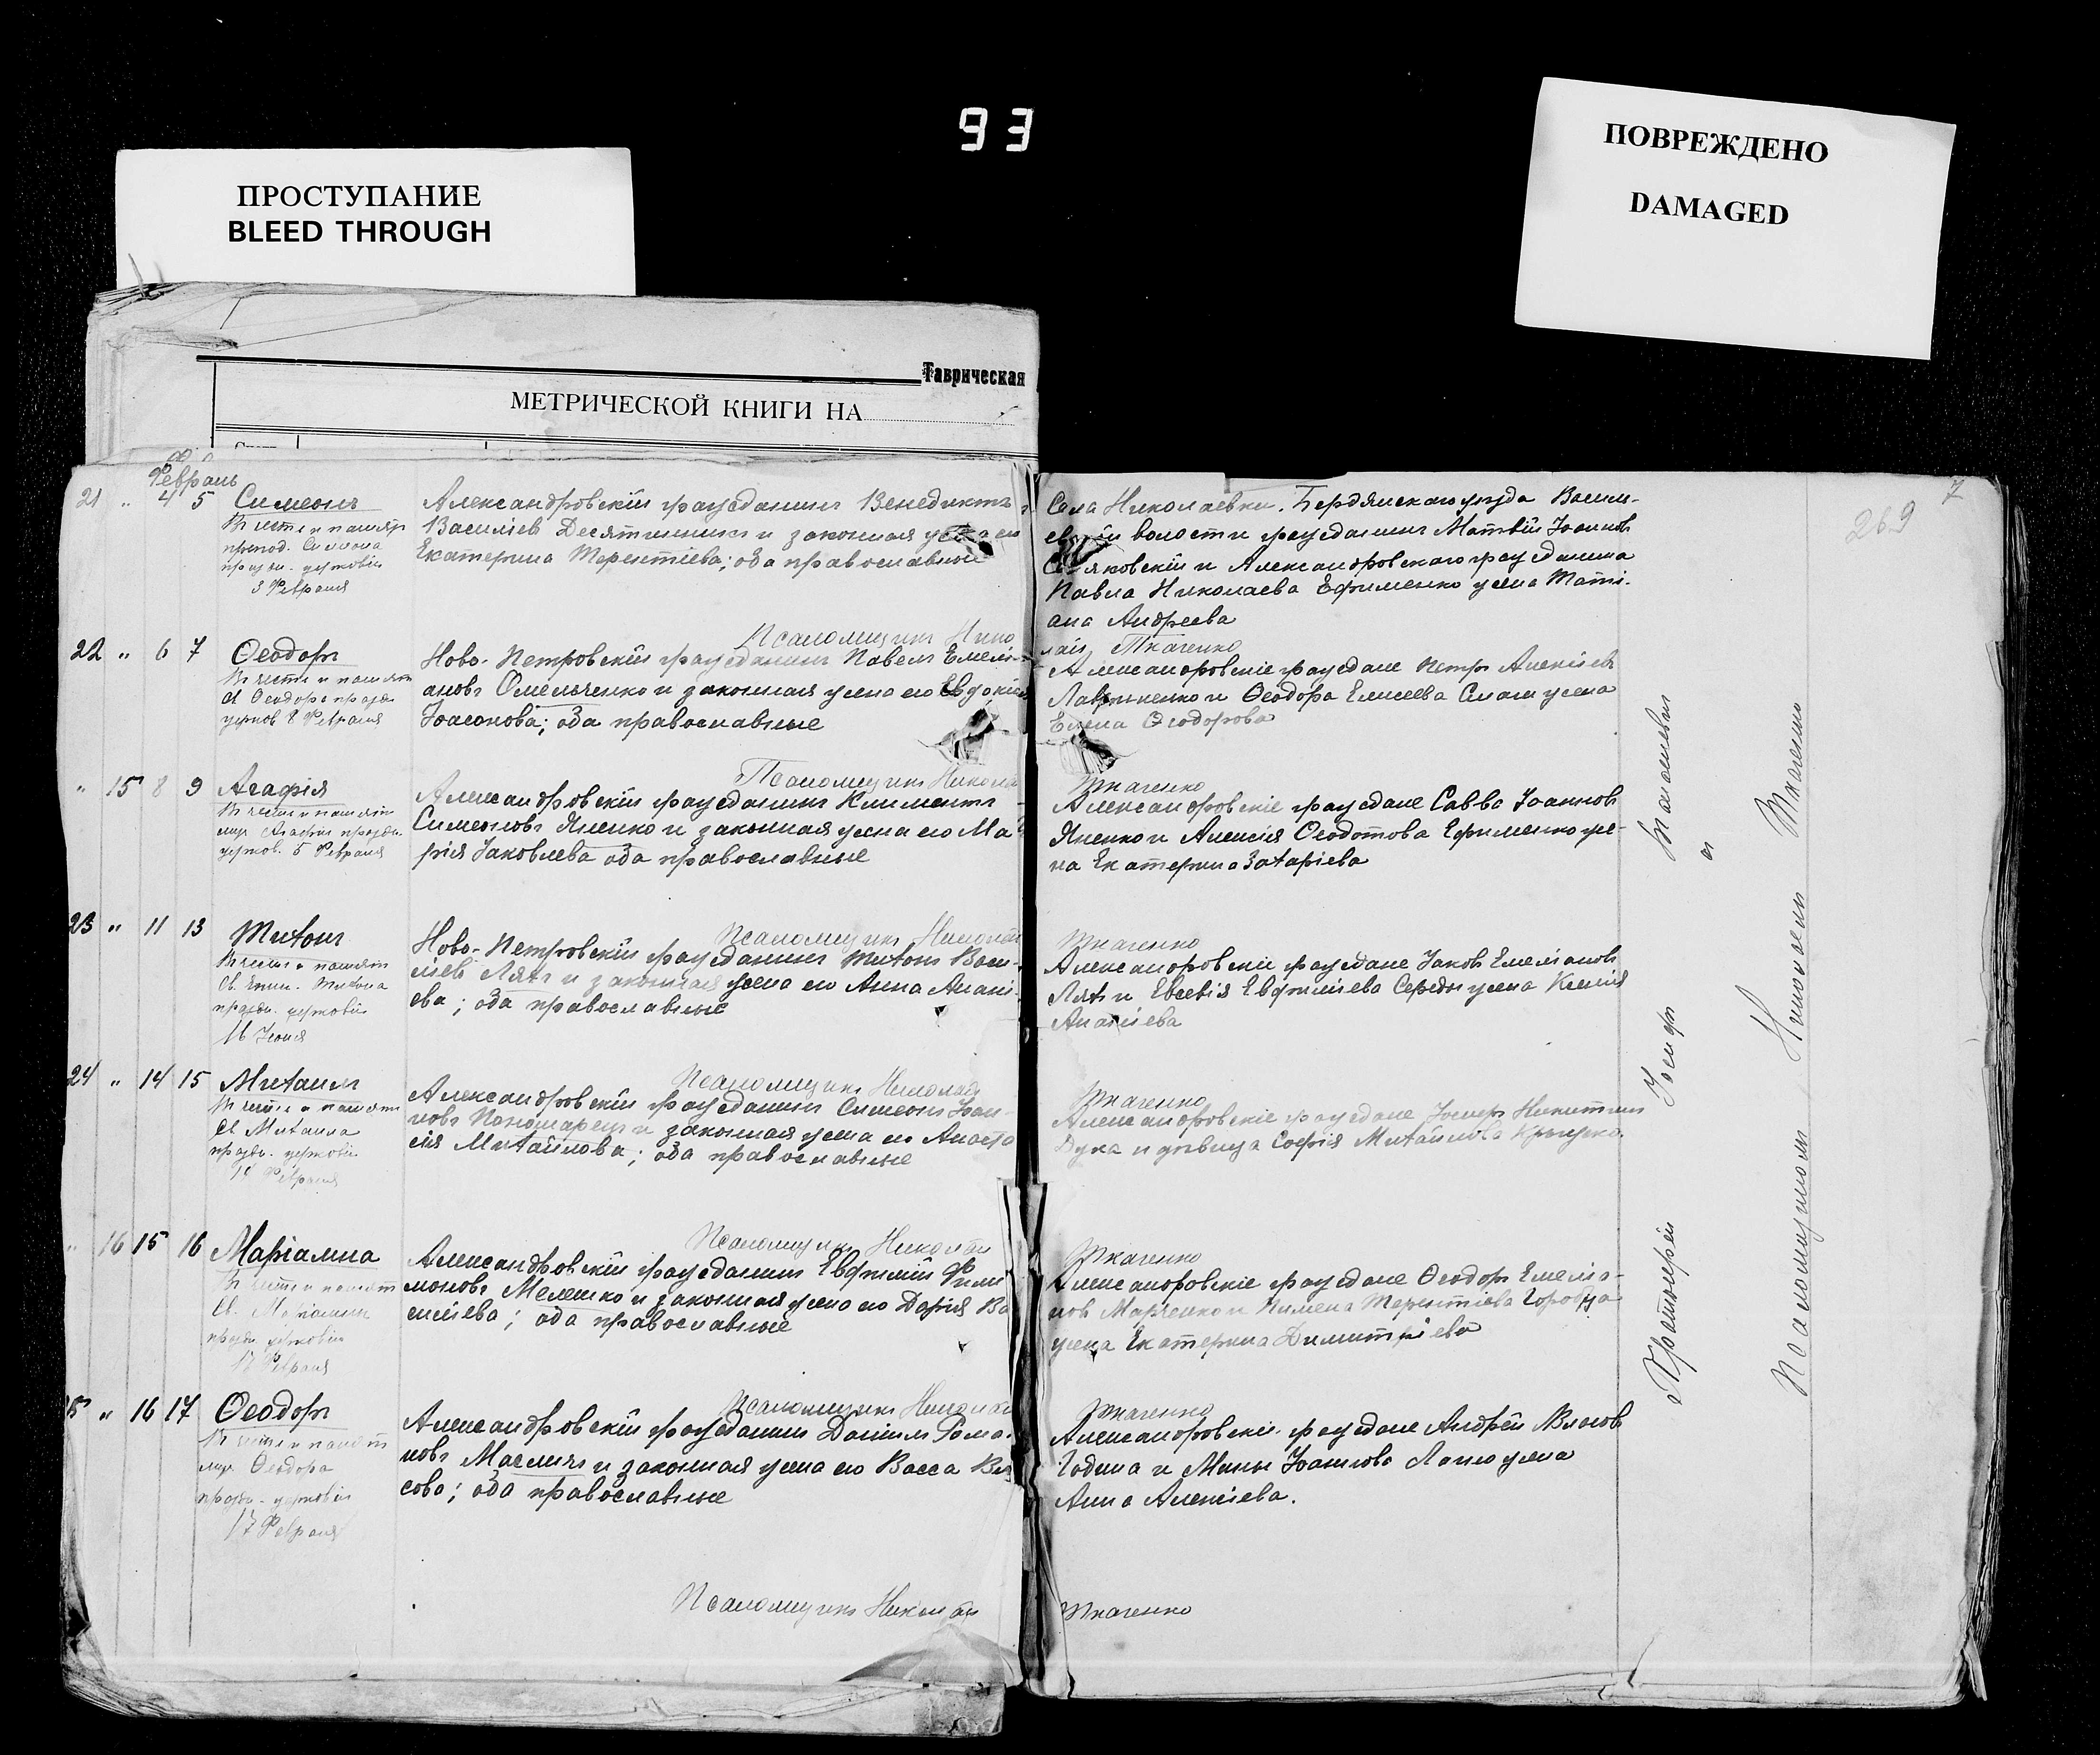 93
ПРОСТУПАНИЕ
BLEED THROUGH
ПОВРЕЖДЕНО
DAMAGED
Таврическая
МЕТРИЧЕСКОЙ КНИГИ НА
7
269
Февраль
21 " 4 5 Симеонъ
Въ честь и память
препод. Симеона
праздн. церковію
3 Февраля
Александровскій гражданинъ Венедиктъ
Василіевъ Десятникъ и законная
Екатерина Терентіева; оба православные
Села Николаевки, Бердянскаго уѣзда Васи-
волости гражданинъ Матвѣй Іоанновъ
и Александровскаго гражданина
Павла Николаева Ефименко жена Тати-
ана Андреева
Псаломщикъ Нико
лай Ткаченко
22 " 6 7 Ѳеодоръ
Въ честь и память
св Ѳеодора праздн
церков 8 Февраля
Ново-Петровскій гражданинъ Павелъ Емелі-
ановъ Омельченко и законная жена его Евдокія
Іоасонова; оба православные
Александровскіе граждане Петръ Алексіевъ
и Ѳеодора Елисеева жена
Елена Ѳеодорова
Псаломщикъ Николай
Ткаченко
" 15 8 9 Агафія
Въ честь и память
муч. Агафіи праздн.
церков. 5 Февраля
Александровскій гражданинъ Климентъ
Симеоновъ Яненко и законная жена его Ма
рія Іаковлева оба православные
Александровскіе граждане Савва Іоанновъ
Яненко и Алексія Ѳеодотова Ефименко же-
на Екатерина Захаріева
Псаломщикъ Николай
Ткаченко
23 " 11 13 Тихонъ
Въ честь и память
Св. Епис. Тихона
праздн. церковію
16 Іюня
Ново-Петровскій гражданинъ Тихонъ Васи-
ліевъ Ляхъ и законная жена его Анна Анані-
ева; оба православные
Александровскіе граждане Іаковъ Емеліановъ
Ляхъ и Евсевія Евфиміева Середы жена Ксенія
Ананіева
Псаломщикъ Николай
Ткаченко
24 " 14 15 Михаилъ
Въ честь и память
св Михаила
праздн. церковію
14 Февраля
Александровскій гражданинъ Симеонъ Іоан-
новъ Пономарецъ и законная жена его Анаста
сія Михайлова; оба православные
Александровскіе граждане Іосифъ Никитинъ
Дука и дѣвица Софія Михайлова
Псаломщикъ Николай
Ткаченко
" 16 15 16 Маріамна
Въ честь и память
Св. Маріамны
праздн. церковію
17 Февраля
Александровскій гражданинъ Евфимій Фили
моновъ Мелешко и законная жена его Дарія Ва
силіева; оба православные
Александровскіе граждане Ѳеодоръ Емеліа-
новъ Марченко и Пимена Терентіева Городца
жена Екатерина Димитріева
Псаломщикъ Николай
Ткаченко
25 " 16 17 Ѳеодоръ
Въ честь и память
муч Ѳеодора
праздн. церковію
17 Февраля
Александровскій гражданинъ Даніилъ Рома-
новъ и законная жена его Васса Вла
сова; оба православные
Александровскіе граждане Андрей Власовъ
Година и Мины Іоаннова жена
Анна Алексіева.
Псаломщикъ Николай
Ткаченко
Протоіерей Іосифъ
и
Псаломщикомъ Николаемъ Ткаченко